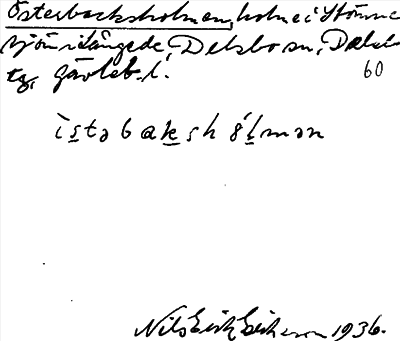 Österbacksholmen, holme i Stömne
sjön i Långede, Delsbo sn, Delsbo
tg, Gävleb. l.
60
ìstəbakshólmən
Nils Erik Eriksson 1936.